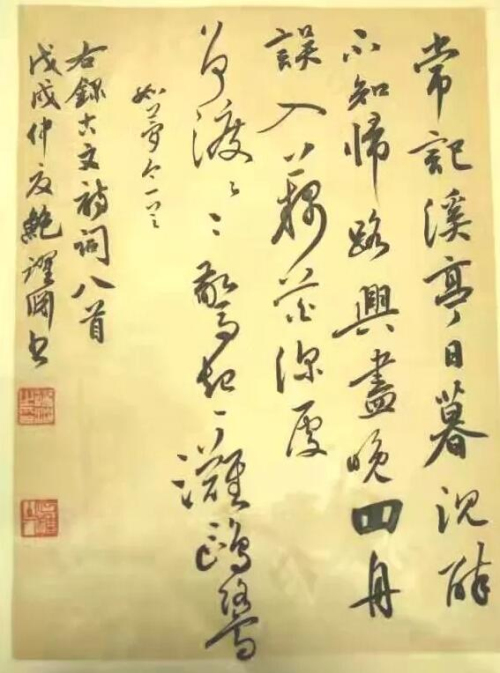 常記溪亭日暮沉醉
不知歸路興盡晚回舟
誤入藕花深處
爭渡〻〻驚起一灘鷗鷺
如夢令一首
右錄古文詩詞八首
戊戌仲夏鮑國書